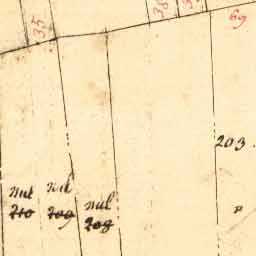 35
38
69
203.
nul
210
nul
209
nul
208